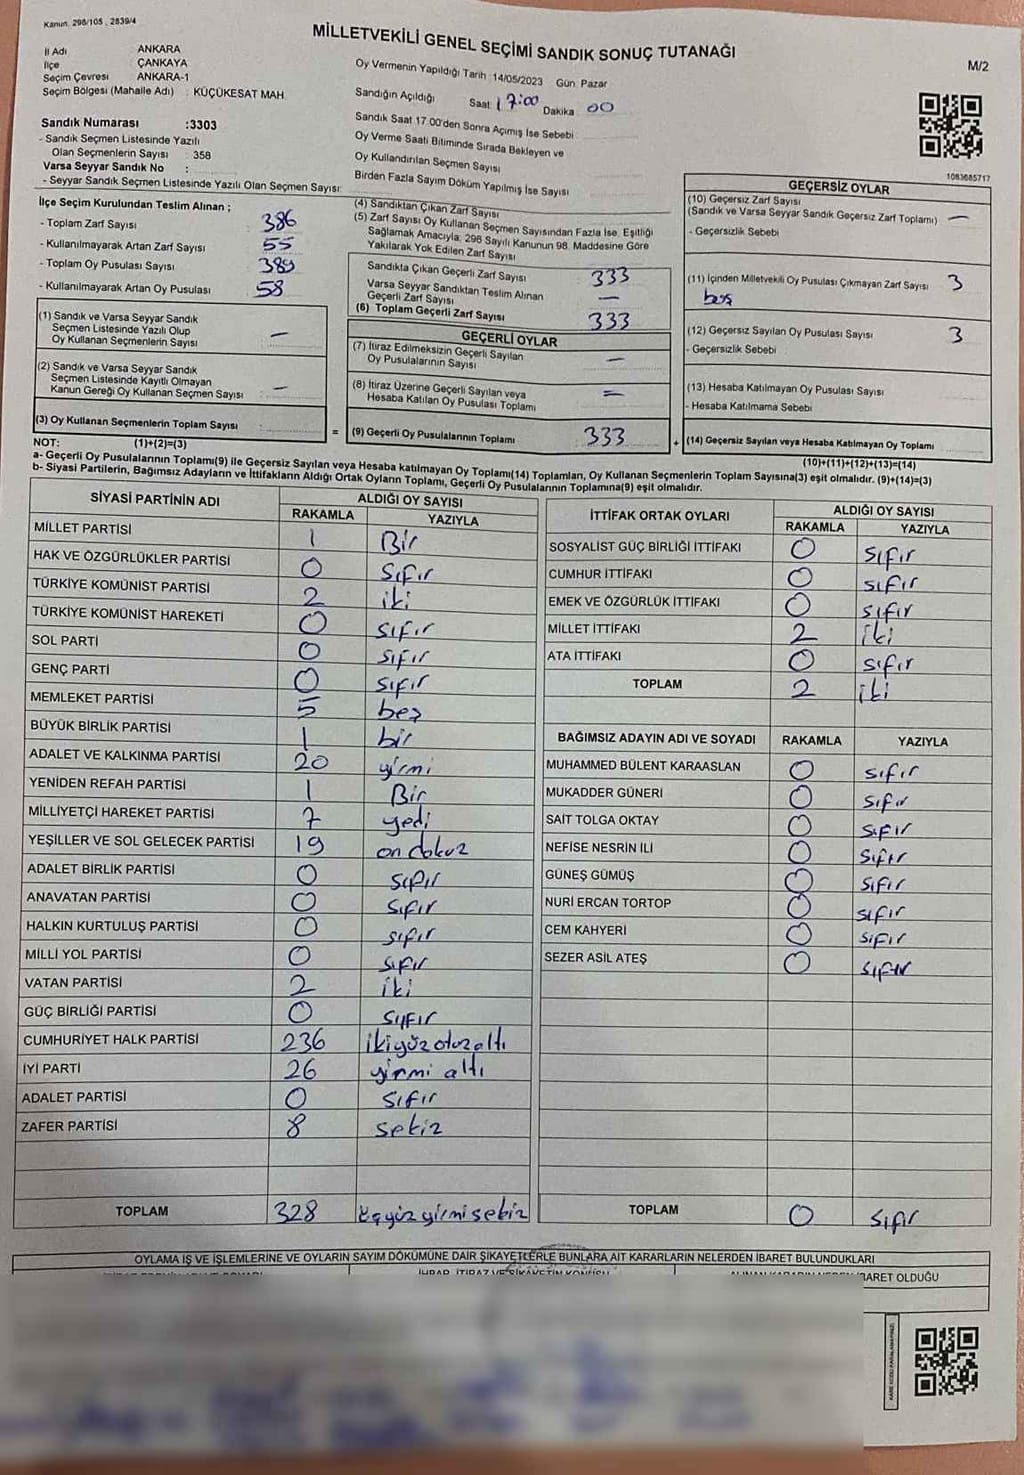 Kanun. 298/105 , 2839/4
MİLLETVEKİLİ GENEL SEÇİMİ SANDIK SONUÇ TUTANAĞI
M/2
İl Adı : ANKARA
İlçe : ÇANKAYA
Seçim Çevresi : ANKARA-1
Seçim Bölgesi (Mahalle Adı) : KÜÇÜKESAT MAH.
Sandık Numarası :3303
- Sandık Seçmen Listesinde Yazılı
Olan Seçmenlerin Sayısı : 358
Varsa Seyyar Sandık No :
- Seyyar Sandık Seçmen Listesinde Yazılı Olan Seçmen Sayısı:
Oy Vermenin Yapıldığı Tarih :14/05/2023 Gün: Pazar
Sandığın Açıldığı Saat 17:00 Dakika 00
Sandık Saat 17.00'den Sonra Açımış İse Sebebi
Oy Verme Saati Bitiminde Sırada Bekleyen ve
Oy Kullandırılan Seçmen Sayısı
Birden Fazla Sayım Döküm Yapılmış İse Sayısı
1083685717
İlçe Seçim Kurulundan Teslim Alınan ;
- Toplam Zarf Sayısı 386
- Kullanılmayarak Artan Zarf Sayısı 55
- Toplam Oy Pusulası Sayısı 389
- Kullanılmayarak Artan Oy Pusulası 58
(1) Sandık ve Varsa Seyyar Sandık
Seçmen Listesinde Yazılı Olup
Oy Kullanan Seçmenlerin Sayısı : —
(2) Sandık ve Varsa Seyyar Sandık
Seçmen Listesinde Kayıtlı Olmayan
Kanun Gereği Oy Kullanan Seçmen Sayısı : —
(3) Oy Kullanan Seçmenlerin Toplam Sayısı :
(4) Sandıktan Çıkan Zarf Sayısı
(5) Zarf Sayısı Oy Kullanan Seçmen Sayısından Fazla İse, Eşitliği
Sağlamak Amacıyla, 298 Sayılı Kanunun 98. Maddesine Göre
Yakılarak Yok Edilen Zarf Sayısı
Sandıkta Çıkan Geçerli Zarf Sayısı 333
Varsa Seyyar Sandıktan Teslim Alınan
Geçerli Zarf Sayısı —
(6) Toplam Geçerli Zarf Sayısı 333
GEÇERLİ OYLAR
(7) İtiraz Edilmeksizin Geçerli Sayılan
Oy Pusulalarının Sayısı —
(8) İtiraz Üzerine Geçerli Sayılan veya
Hesaba Katılan Oy Pusulası Toplamı =
= (9) Geçerli Oy Pusulalarının Toplamı 333
GEÇERSİZ OYLAR
(10) Geçersiz Zarf Sayısı
(Sandık ve Varsa Seyyar Sandık Geçersiz Zarf Toplamı) —
- Geçersizlik Sebebi
(11) İçinden Milletvekili Oy Pusulası Çıkmayan Zarf Sayısı 3
boş
(12) Geçersiz Sayılan Oy Pusulası Sayısı 3
- Geçersizlik Sebebi
(13) Hesaba Katılmayan Oy Pusulası Sayısı
- Hesaba Katılmama Sebebi
+ (14) Geçersiz Sayılan veya Hesaba Katılmayan Oy Toplamı
NOT: (1)+(2)=(3)
(10)+(11)+(12)+(13)=(14)
a- Geçerli Oy Pusulalarının Toplamı(9) ile Geçersiz Sayılan veya Hesaba katılmayan Oy Toplamı(14) Toplamları, Oy Kullanan Seçmenlerin Toplam Sayısına(3) eşit olmalıdır. (9)+(14)=(3)
b- Siyasi Partilerin, Bağımsız Adayların ve İttifakların Aldığı Ortak Oyların Toplamı, Geçerli Oy Pusulalarının Toplamına(9) eşit olmalıdır.
SİYASİ PARTİNİN ADI ALDIĞI OY SAYISI
RAKAMLA YAZIYLA
MİLLET PARTİSİ 1 Bir
HAK VE ÖZGÜRLÜKLER PARTİSİ 0 Sıfır
TÜRKİYE KOMÜNİST PARTİSİ 2 iki
TÜRKİYE KOMÜNİST HAREKETİ 0 sıfır
SOL PARTİ 0 sıfır
GENÇ PARTİ 0 sıfır
MEMLEKET PARTİSİ 5 beş
BÜYÜK BİRLİK PARTİSİ 1 bir
ADALET VE KALKINMA PARTİSİ 20 yirmi
YENİDEN REFAH PARTİSİ 1 Bir
MİLLİYETÇİ HAREKET PARTİSİ 7 yedi
YEŞİLLER VE SOL GELECEK PARTİSİ 19 on dokuz
ADALET BİRLİK PARTİSİ 0 sıfır
ANAVATAN PARTİSİ 0 sıfır
HALKIN KURTULUŞ PARTİSİ 0 sıfır
MİLLİ YOL PARTİSİ 0 sıfır
VATAN PARTİSİ 2 iki
GÜÇ BİRLİĞİ PARTİSİ 0 sıfır
CUMHURİYET HALK PARTİSİ 236 ikiyüz otuz altı
İYİ PARTİ 26 yirmi altı
ADALET PARTİSİ 0 sıfır
ZAFER PARTİSİ 8 sekiz
TOPLAM 328 üçyüz yirmi sekiz
İTTİFAK ORTAK OYLARI ALDIĞI OY SAYISI
RAKAMLA YAZIYLA
SOSYALİST GÜÇ BİRLİĞİ İTTİFAKI 0 sıfır
CUMHUR İTTİFAKI 0 sıfır
EMEK VE ÖZGÜRLÜK İTTİFAKI 0 sıfır
MİLLET İTTİFAKI 2 iki
ATA İTTİFAKI 0 sıfır
TOPLAM 2 iki
BAĞIMSIZ ADAYIN ADI VE SOYADI RAKAMLA YAZIYLA
MUHAMMED BÜLENT KARAASLAN 0 sıfır
MUKADDER GÜNERİ 0 sıfır
SAİT TOLGA OKTAY 0 sıfır
NEFİSE NESRİN İLİ 0 sıfır
GÜNEŞ GÜMÜŞ 0 sıfır
NURİ ERCAN TORTOP 0 sıfır
CEM KAHYERİ 0 sıfır
SEZER ASİL ATEŞ 0 sıfır
TOPLAM 0 sıfır
OYLAMA İŞ VE İŞLEMLERİNE VE OYLARIN SAYIM DÖKÜMÜNE DAİR ŞİKAYETLERLE BUNLARA AİT KARARLARIN NELERDEN İBARET BULUNDUKLARI
İHBAR, İTİRAZ VE ŞİKAYETİN KONUSU
İBARET OLDUĞU